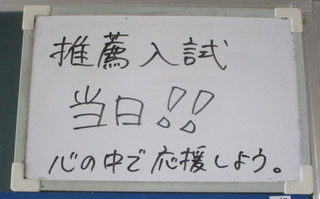 推薦入試
当日!!
心の中で応援しよう。